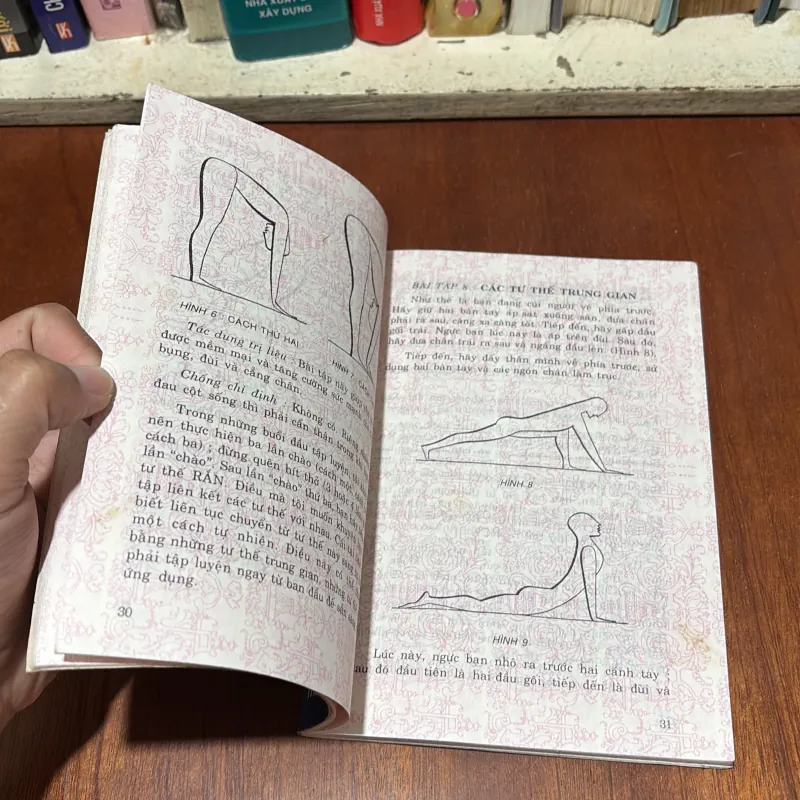 NHÀ XUẤT BẢN
XÂY DỰNG
NHÀ XUẤT
HÌNH 6 : CÁCH THỨ HAI
HÌNH 7 : CÁC
Tác dụng trị liệu : Bài tập này giúp
được mềm mại và tăng cường sức mạnh
bụng, đùi và cẳng chân.
Chống chỉ định : Không có. Riêng
đau cột sống thì phải cẩn thận trong
Trong những buổi đầu tập luyện,
nên thực hiện ba lần chào (cách một,
cách ba) ; đừng quên hít thở (3 hoặc
lần "chào". Sau lần "chào" thứ ba, bạn
tư thế RẮN. Điều mà tôi muốn khuyên
tập liên kết các tư thế với nhau. Cái
biết liên tục chuyển từ tư thế này sang
một cách tự nhiên. Điều này có
bằng những tư thế trung gian, những
phải tập luyện ngay từ ban đầu để sẵn sàng
ứng dụng.
30
BÀI TẬP 8 : CÁC TƯ THẾ TRUNG GIAN
Như thế là bạn đang cúi người về phía trước.
Hãy giữ hai bàn tay áp sát xuống sàn, đưa chân
phải ra sau, càng xa càng tốt. Tiếp đến, hãy gấp đầu
gối trái. Ngực bạn lúc này là áp trên đùi. Sau đó,
hãy đưa chân trái ra sau và ngẩng đầu lên. (Hình 8).
Tiếp đến, hãy đẩy thân mình về phía trước, sử
dụng hai bàn tay và các ngón chân làm trục.
HÌNH 8
HÌNH 9
Lúc này, ngực bạn nhô ra trước hai cánh tay ;
au đó đầu tiên là hai đầu gối, tiếp đến là đùi và
31